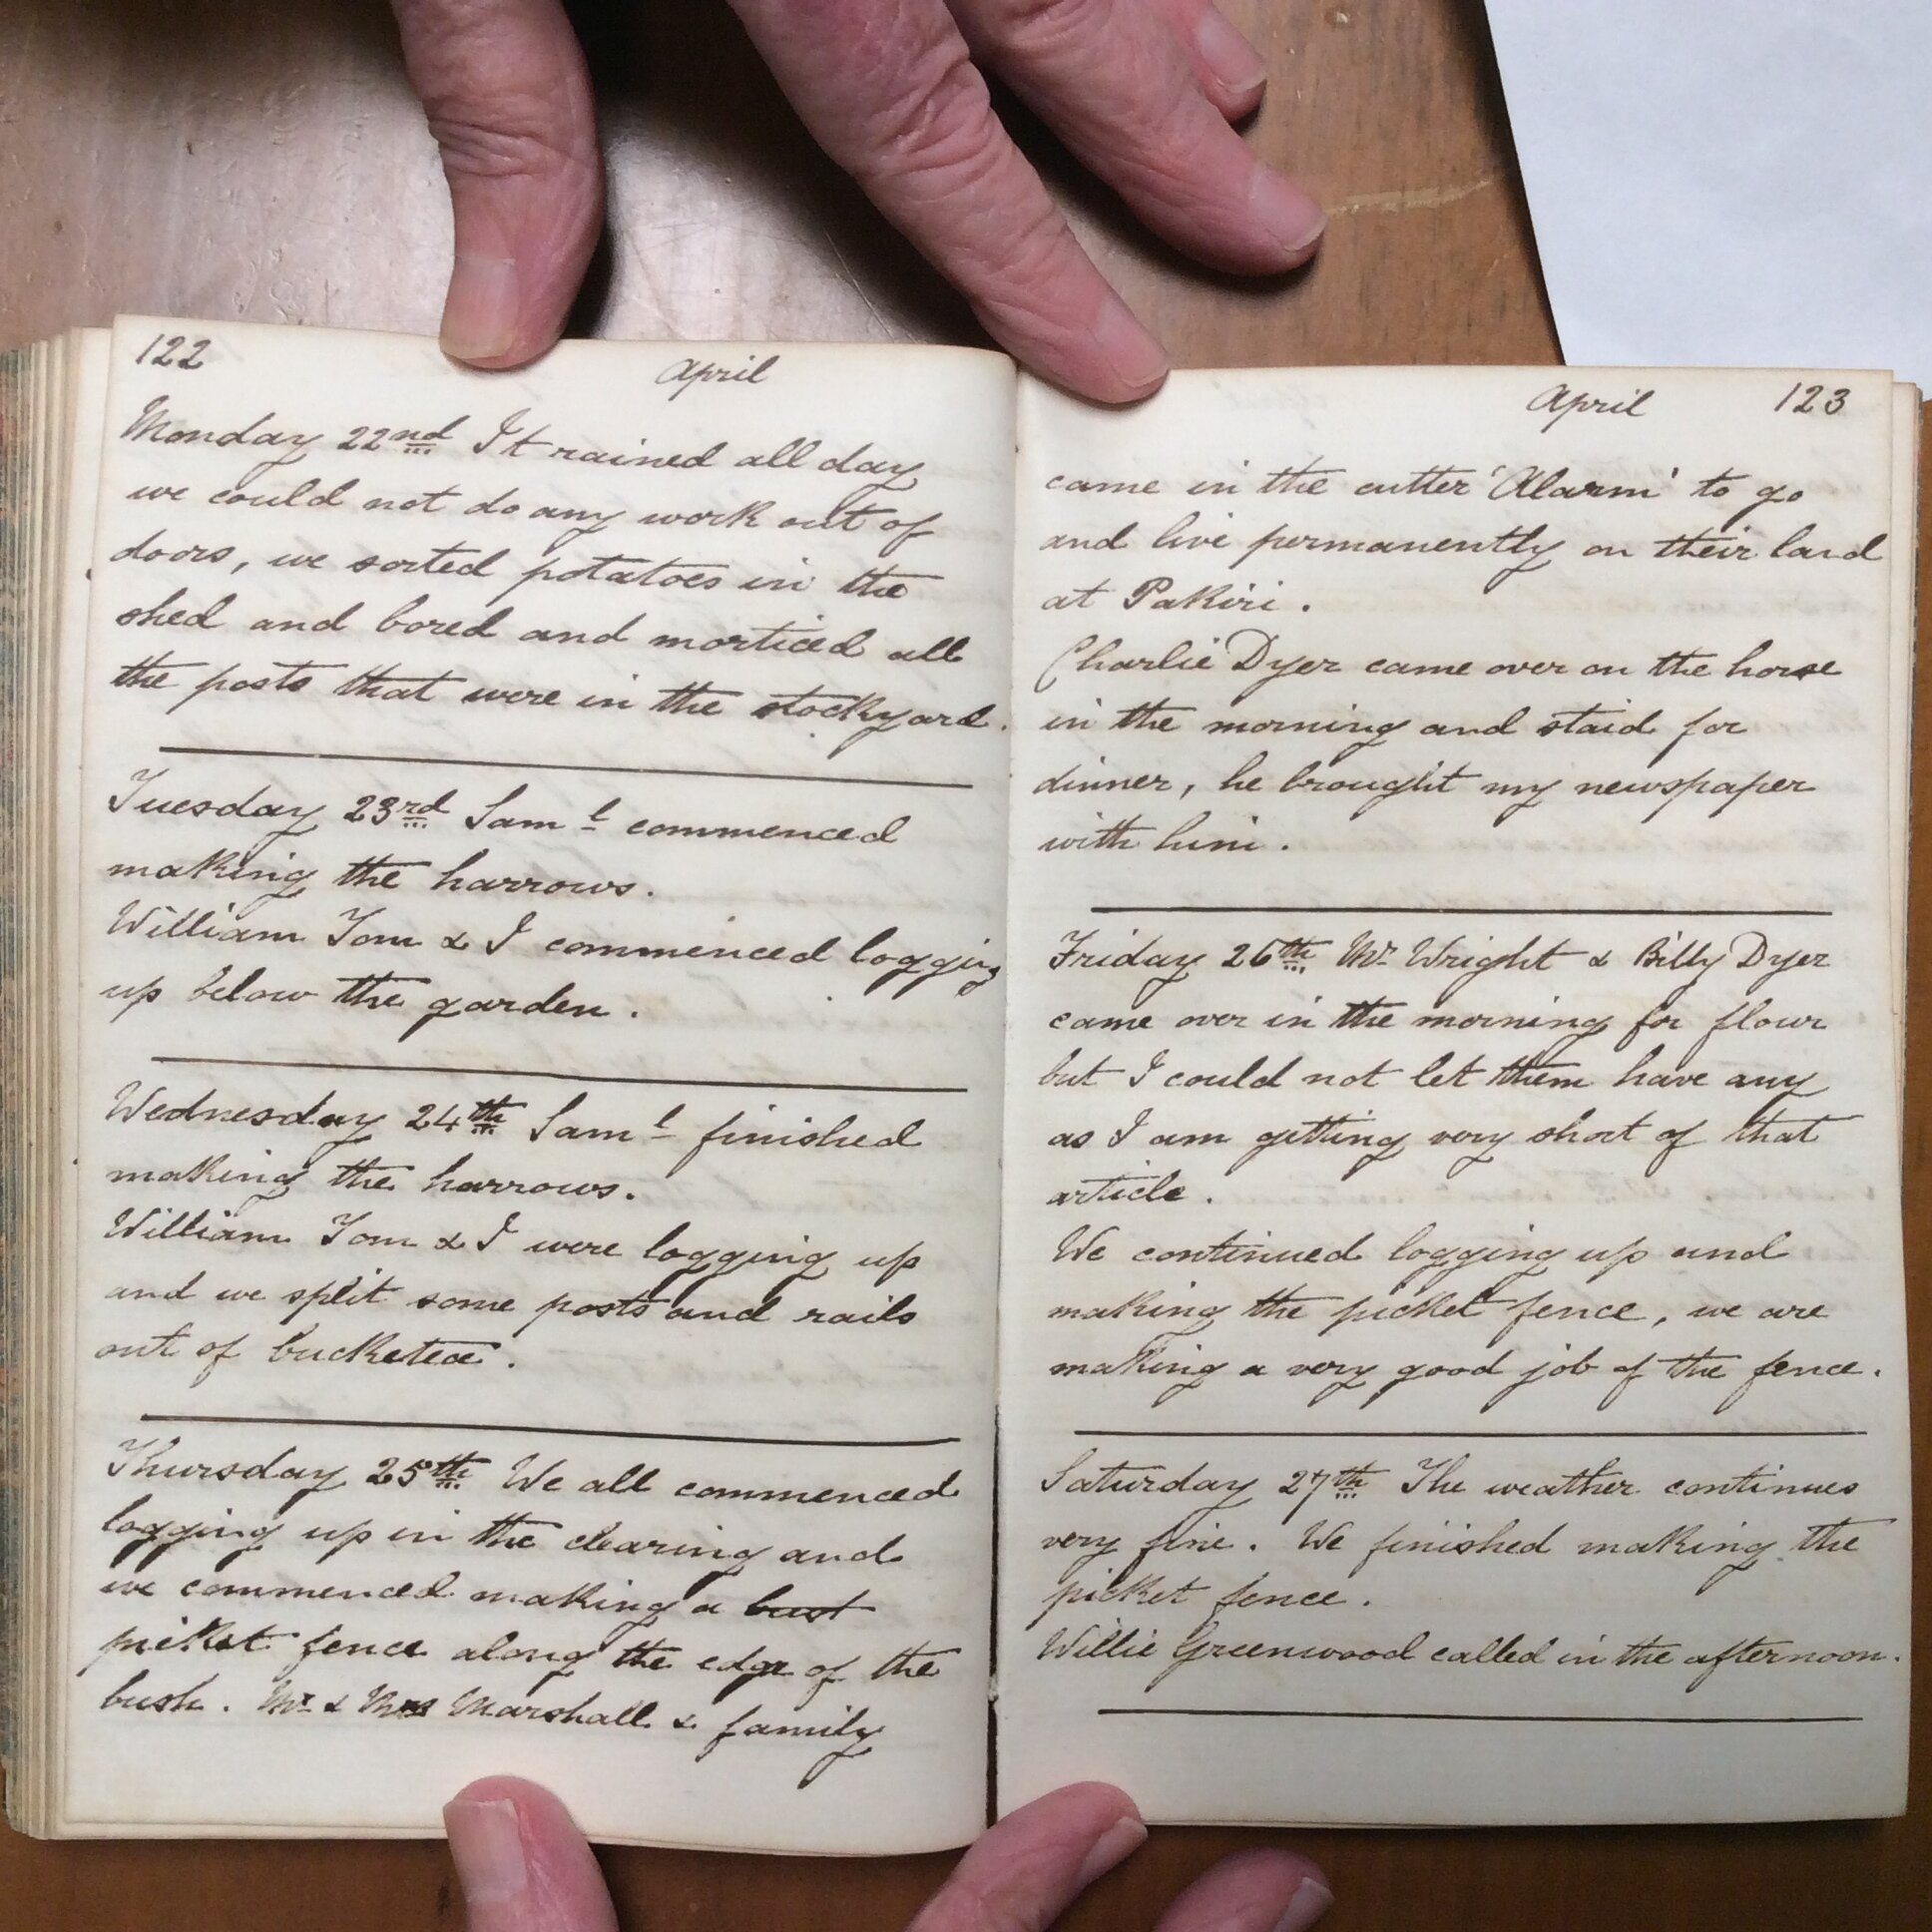 122
April
Monday 22nd It rained all day
we could not do any work out of
doors, we sorted potatoes in the
shed and bored and morticed all
the posts that were in the stockyard.
Tuesday 23rd Saml commenced
making the harrows.
William Tom & I commenced logging
up below the garden.
Wednesday 24th Saml finished
making the harrows.
William Tom & I were logging up
and we split some posts and rails
out of bucketea.
Thursday 25th We all commenced
logging up in the clearing and
we commenced making a bust
picket fence along the edge of the
bush. Mr & Mrs Marshall & family
April 123
came in the cutter 'Alarm' to go
and live permanently on their land
at Pakiri.
Charlie Dyer came over on the horse
in the morning and staid for
dinner, he brought my newspaper
with him.
Friday 26th Mr Wright & Billy Dyer
came over in the morning for flour
but I could not let them have any
as I am getting very short of that
article.
We continued logging up and
making the picket fence, we are
making a very good job of the fence.
Saturday 27th The weather continues
very fine. We finished making the
picket fence.
Willie Greenwood called in the afternoon.